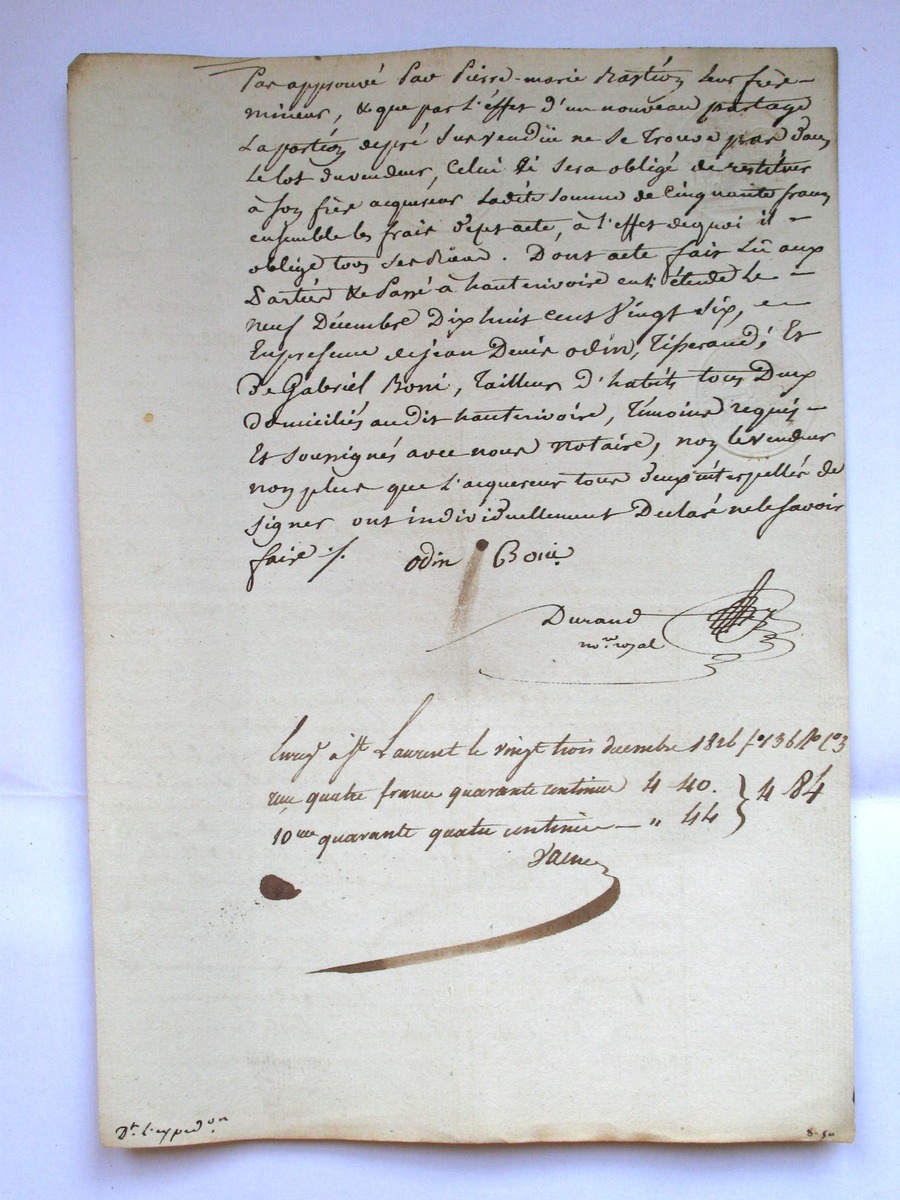 Pas approuvé Par Pierre-marie Rastion leur frère
mineur, & que par l'éffet d'un nouveau partage
La portion depré Survendüe ne se trouve pas dans
Le lot du vendeur, Celui Ci sera obligé de restituer
à son frère acquereur Ladite somme de Cinquante francs
ensemble les frais d'yst acte, à l'effet dequoi il
oblige tous ses Biens. Dont acte fait Lû aux
Parties & Passé à hauterivoire en l'étude le
neuf Décembre Dix huit cent Vingt Six, en
En presence de jean Denis odin, Tisserand, Et
De Gabriel Boni, Tailleur D'habits tous Deux
domiciliés audit hauterivoire, Témoins requis
Et soussignés avec nous Notaire, non le vendeur
non plus que l'acquereur tous deux interpellés de
signer ont individuellement Declaré ne le savoir
faire ./. odin Boni
Durand
no.re royal
Enreg. à St Laurent le vingt trois decembre 1826 fo 136 Ro Co 3
reçu quatre francs quarante centimes 4 40. } 4 84
10me quarante quatre centimes — " 44
Dt. l'expedon
8-50